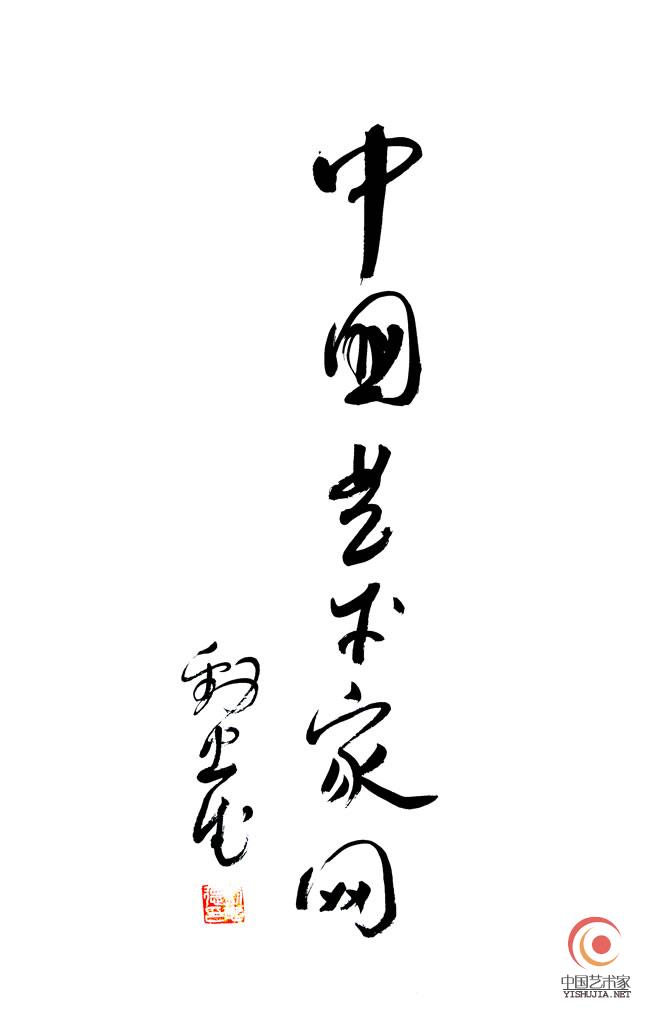 中国艺术家网
中国艺术家
YISHUJIA.NET